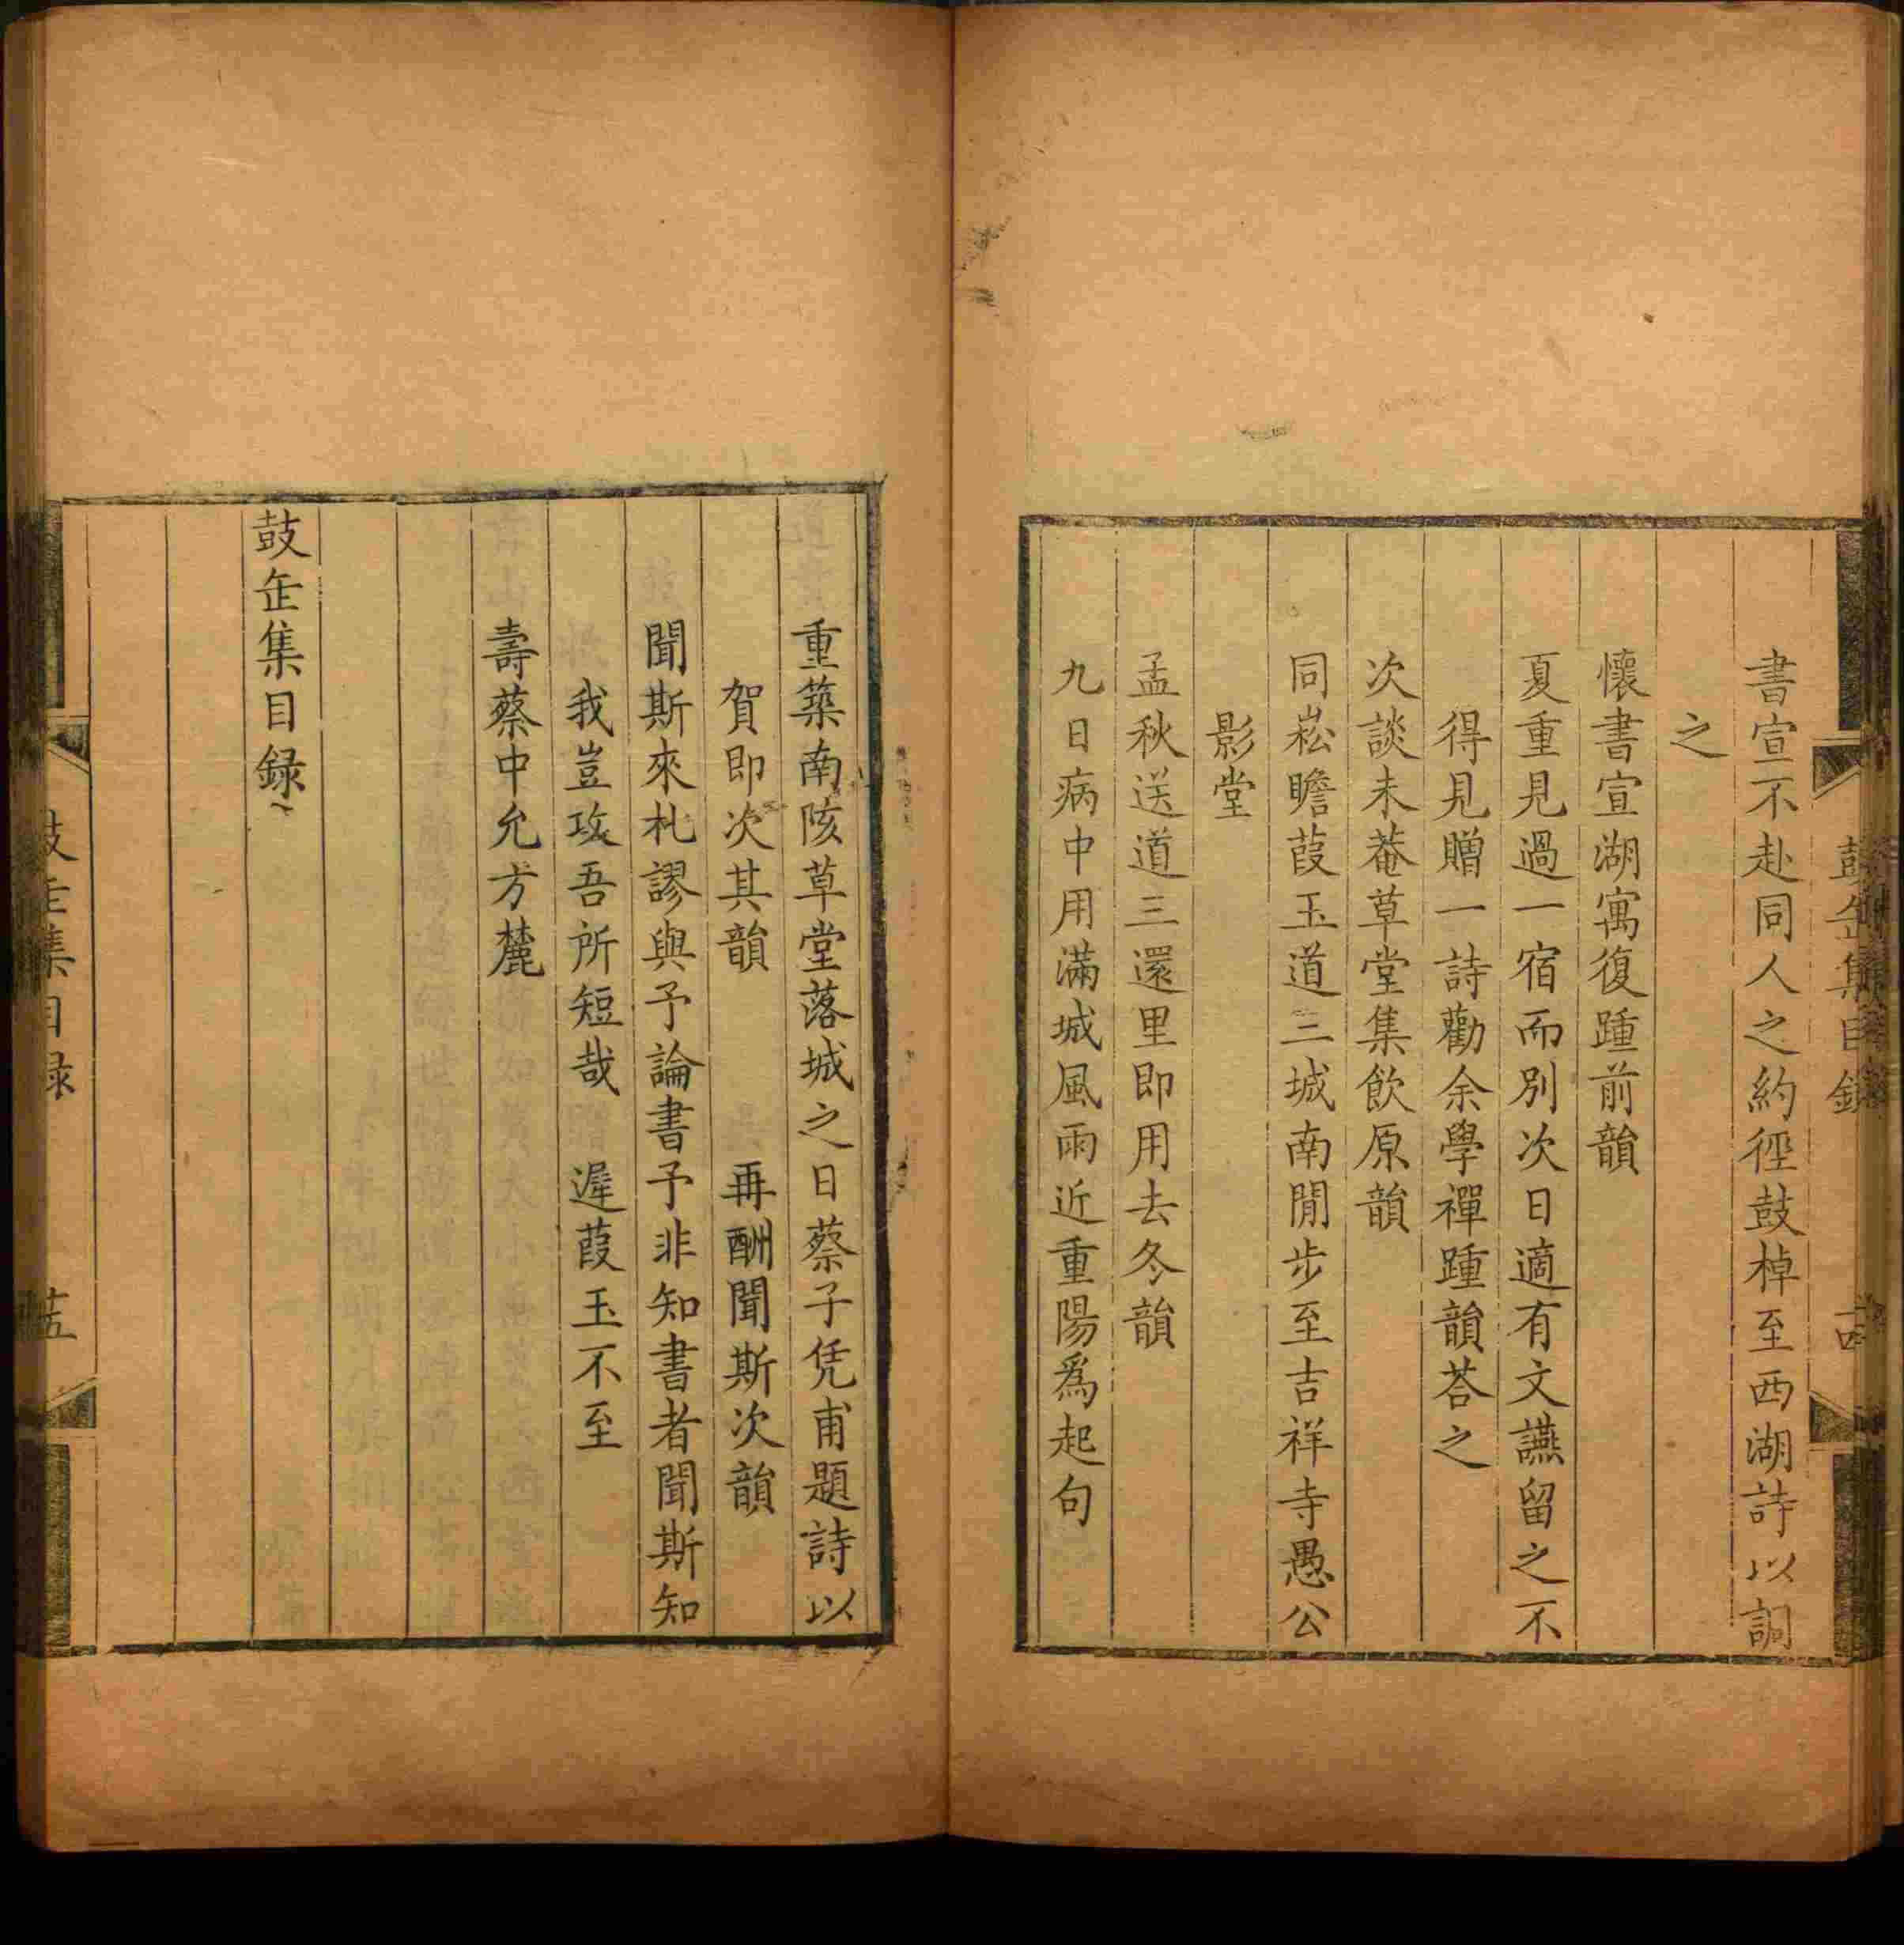 書宣不赴同人之約徑鼓棹至西湖詩以詗
之
懷書宣湖寓復踵前韻
夏重見過一宿而別次日適有文讌留之不
得見贈一詩勸余學禪踵韻荅之
次談未菴草堂集飲原韻
同崧瞻葭玉道三城南閒步至吉祥寺愚公
影堂
孟秋送道三還里即用去冬韻
九日病中用滿城風雨近重陽爲起句
重築南陔草堂落城之日蔡子凭甫題詩以
賀即次其韻　再酬聞斯次韻
聞斯來札謬與予論書予非知書者聞斯知
我豈攻吾所短哉　遲葭玉不至
壽蔡中允方麓
鼓缶集目録
鼓缶集目録